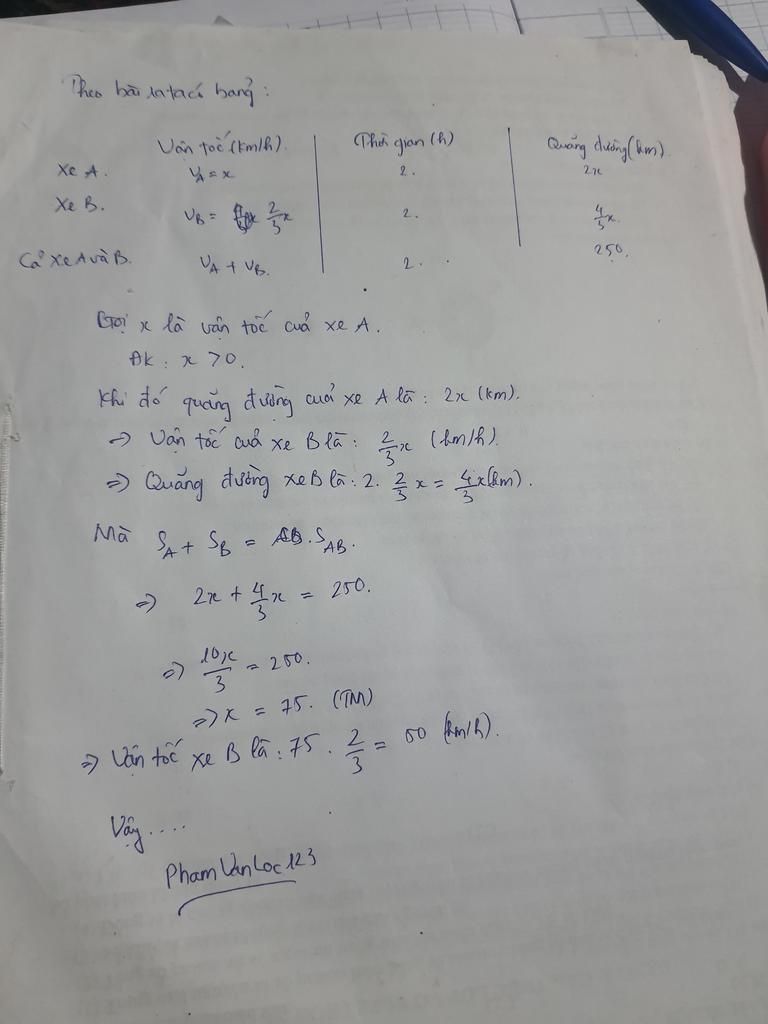 Theo bài ra ta có bảng:
Vận tốc (km/h). Thời gian (h) Quãng đường (km).
Xe A. V_A = x 2. 2x
Xe B. V_B = 2/3 x 2. 4/3 x.
Cả xe A và B. V_A + V_B. 2. 250.
Gọi x là vận tốc của xe A.
ĐK: x > 0.
Khi đó quãng đường của xe A là: 2x (km).
=> Vận tốc của xe B là: 2/3 x (km/h).
=> Quãng đường xe B là: 2. 2/3 x = 4/3 x (km).
Mà S_A + S_B = S_AB.
=> 2x + 4/3 x = 250.
=> 10x/3 = 250.
=> x = 75. (TM)
=> Vận tốc xe B là: 75 . 2/3 = 50 (km/h).
Vậy....
PhamVanLoc123